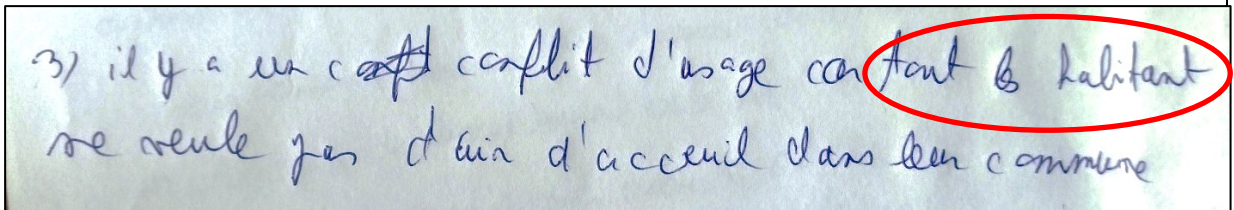 3) il y a un conflit d'usage car tout les habitant
ne veule pas d'air d'acceuil dans leur commune